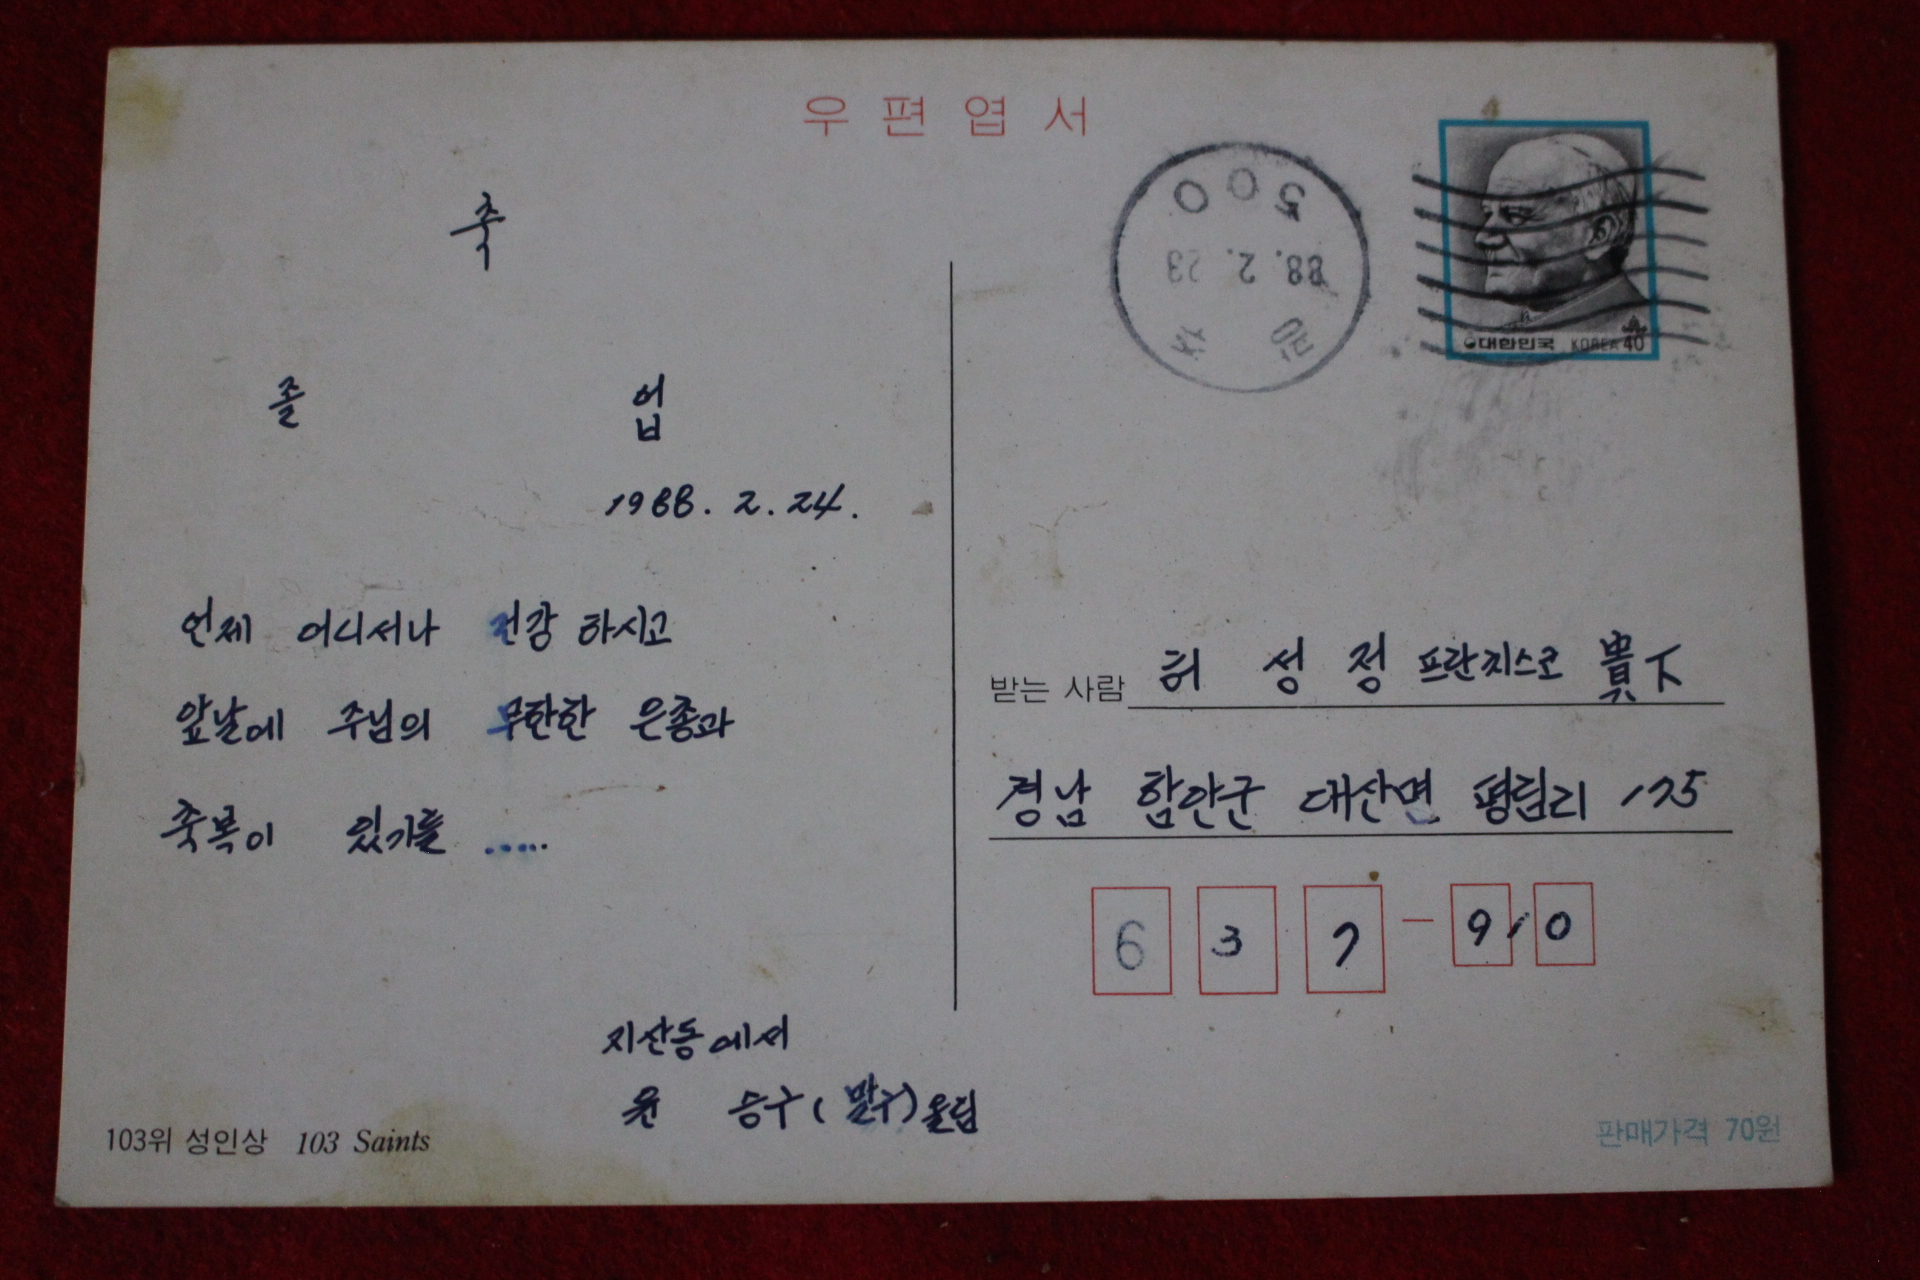 우편엽서
축
졸 업
1988. 2. 24.
언제 어디서나 건강 하시고
앞날에 주님의 무한한 은총과
축복이 있기를 .....
지산동에서
윤 승구(말구)올림
103위 성인상 103 Saints
500
88. 2. 23
대한민국 KOREA 40
받는 사람 허 성 정 프란치스코 貴下
경남 함안군 대산면 평림리 175
637-910
판매가격 70원